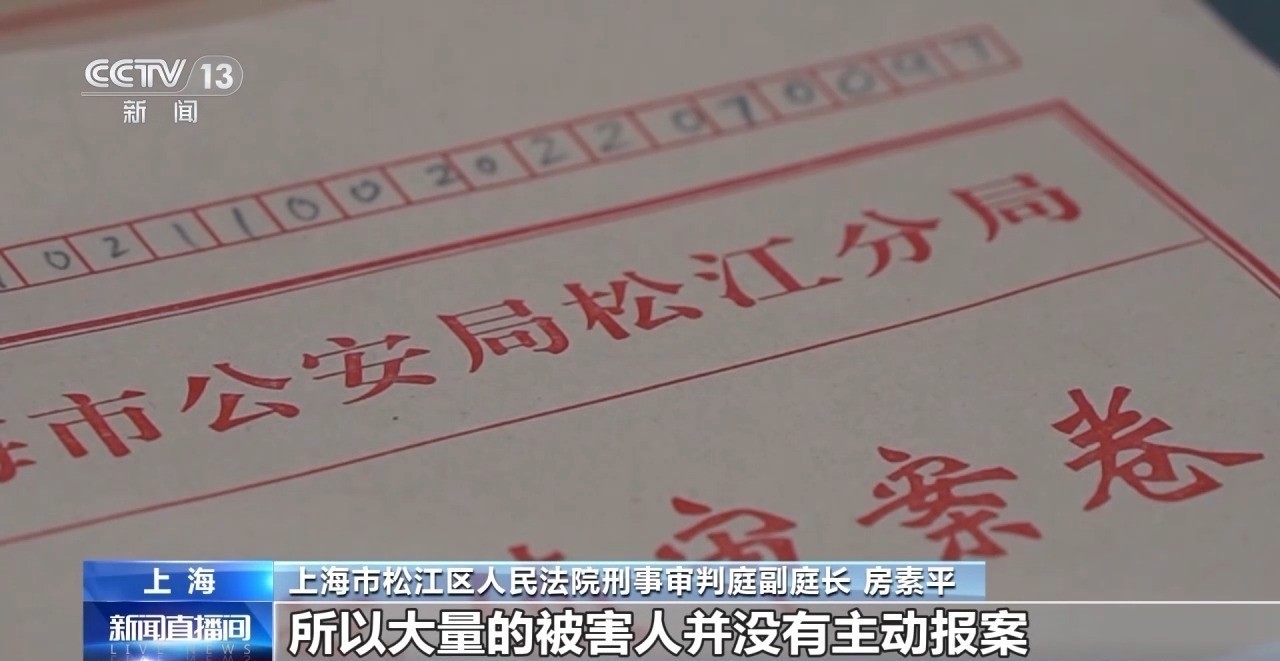 CCTV 13
新闻
0211002022070097
市公安局松江分局
案卷
上海
上海市松江区人民法院刑事审判庭副庭长 房素平
新闻直播间
LIVE NEWS
所以大量的被害人并没有主动报案